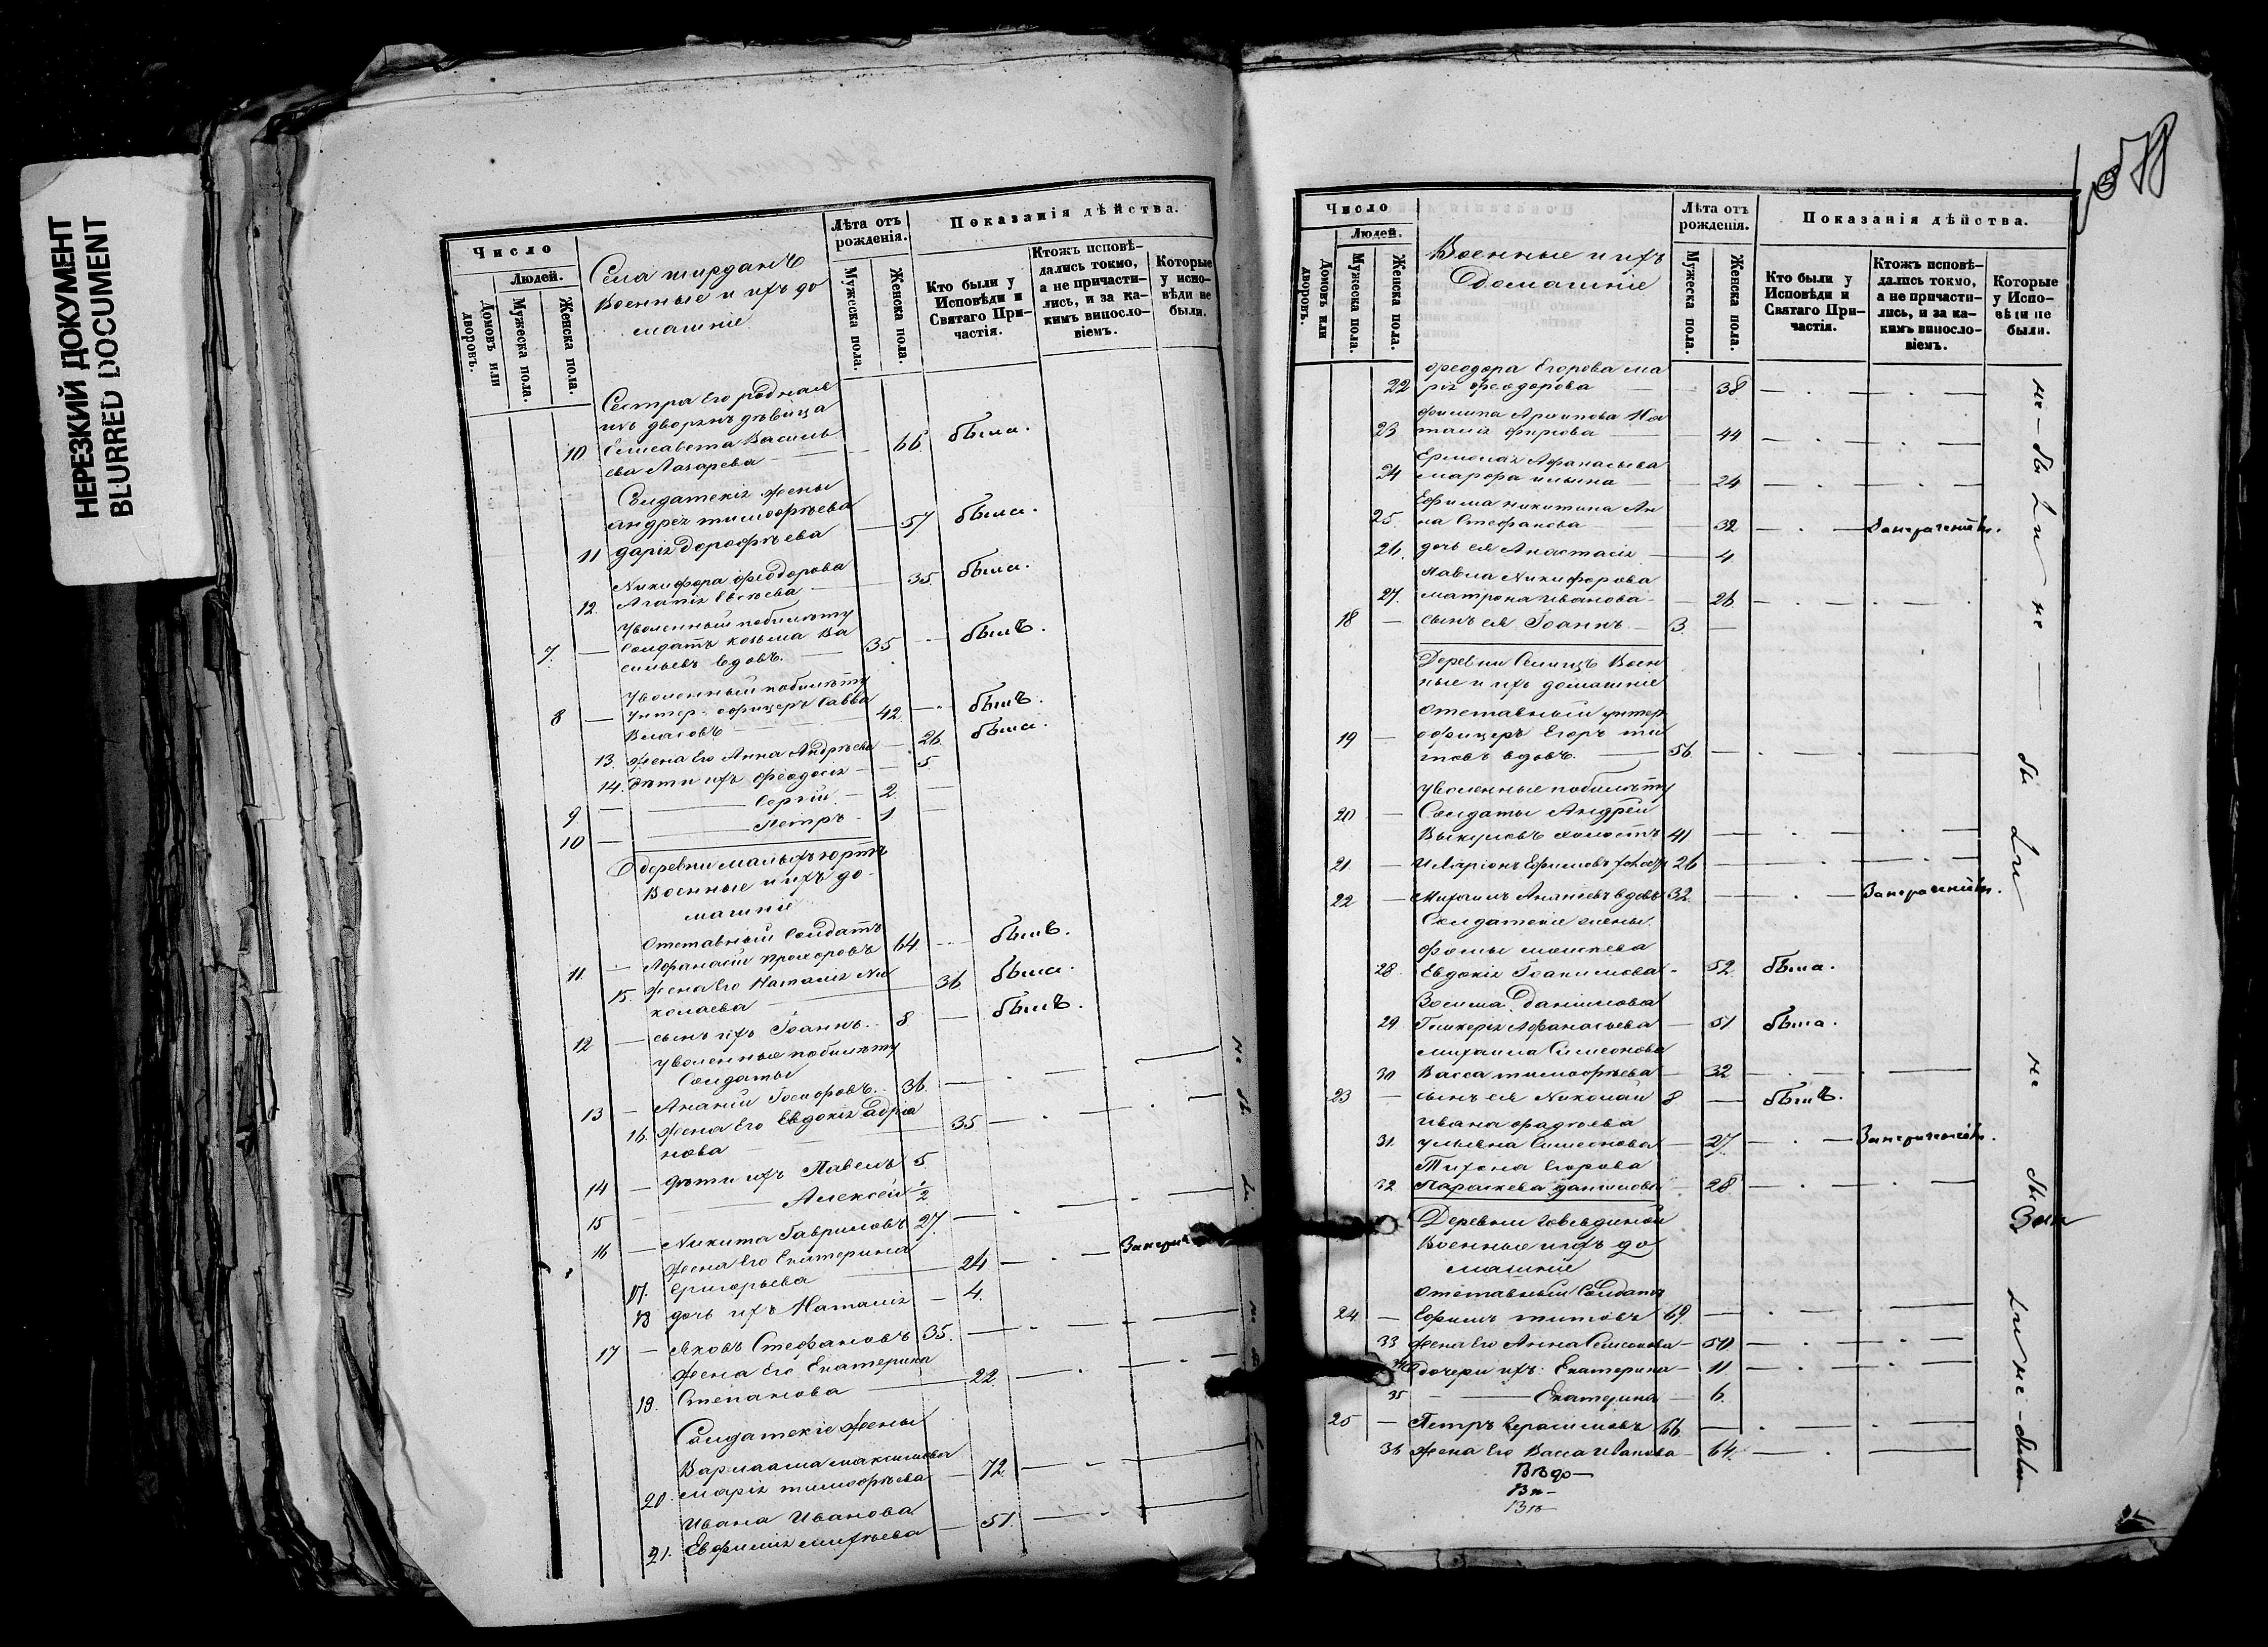 НЕРЕЗКИЙ ДОКУМЕНТ
BLURRED DOCUMENT
Число
Людей.
Домовъ или дворовъ.
Мужеска пола.
Женска пола.
Села ширданъ
Военные и ихъ до
машніе
Лѣта отъ рожденія.
Мужеска пола.
Женска пола.
Показанія дѣйства.
Кто были у Исповѣди и Святаго Причастія.
Ктожъ исповѣдались токмо, а не причастились, и за какимъ винословіемъ.
Которые у исповѣди не были.
Сестра его родная
изъ дворянъ дѣвица
10 Елисавета Василь 66 была.
ева Лазарева
Солдатскія жены
Андрея тимофѣева
11 дарія Дорофѣева 57 была.
Никифора феодорова
12. Агапія Евсѣева 35. была.
Уволенный побилѣту
7. Солдатъ козьма Ва 35 былъ.
сильевъ вдовъ.
Уволенный побилѣту
8 Унтер-офицеръ Савва 42 былъ.
Власовъ
13. жена его Анна Андрѣева 26. была.
14. дѣти ихъ феодосія 5.
9 Сергій. 2
10 Петръ 1
деревни малыхъ юртъ
Военные и ихъ до-
машніе
Отставный Солдатъ
11. Афанасій прохоровъ 64 былъ.
15. жена его Наталія Ни 36. была.
колаева
12 сынъ ихъ Іоаннъ. 8 былъ.
уволенные побилѣту
Солдаты
13 Ананій Іосифовъ. 36.
16. жена его Евдокія адріа 35
нова
14 дѣти ихъ Павелъ 5.
15 Алексѣй 1/2
16 Никита Гавриловъ 27.
жена его Екатерина
17. Григорьева 24
18 дочь ихъ Наталія 4.
17 Яковъ Стефановъ 35.
жена его Екатерина
19. Степанова 22.
Солдатскіе жены
Варлаама максимова
20. марія тимофѣева 72.
Ивана Иванова
21. Евфимія михѣева 51.
Число
Людей.
Домовъ или дворовъ.
Мужеска пола.
Женска пола.
Военные и ихъ
Домашніе
Лѣта отъ рожденія.
Мужеска пола.
Женска пола.
Показанія дѣйства.
Кто были у Исповѣди и Святаго Причастія.
Ктожъ исповѣдались токмо, а не причастились, и за какимъ винословіемъ.
Которые у Исповѣди не были.
феодора Егорова ма
22 рія феодорова 38
филипа Архипова На
23 талія фирсова 44
Ермолая Афанасьева
24 марфа ильина 24
Ефима никитина Ан
25. на Стефанова 32
26. дочь ея Анастасія 4
Павла Никифорова
27. матрона иванова 26
18 сынъ ея Іоаннъ 3.
Деревни Воен
ные и ихъ домашніе
отставный унтер
19 офицеръ Егоръ ти
товъ вдовъ. 56.
уволенные побилѣту
20 Солдаты Андрей
Викуловъ холостъ 41
21 Иларіонъ Ефимовъ холост 26
22 Михаилъ Ананьевъ вдовъ 32
Солдатскіе жены.
фомы моисѣева
28. Евдокія Іоакимова 52. была.
Зосима Даніилова
29 Гликерія Афанасьева 51 была.
михаила Симеонова
30 Васса тимофѣева 32
23 сынъ ея Николай 8. былъ.
ивана фадѣева
31. ульяна Симеонова 27
Тихона Егорова
32 Параскева данилова 28
Деревни
Военные ихъ до
машніе
отставный Солдатъ
24. Ефимъ титовъ 69.
33 жена его Анна Симеонова 50
34 дочери ихъ: Екатерина 11.
35 Екатерина 6.
25 Петръ Герасимовъ 66
36 жена его Васса иванова 64.